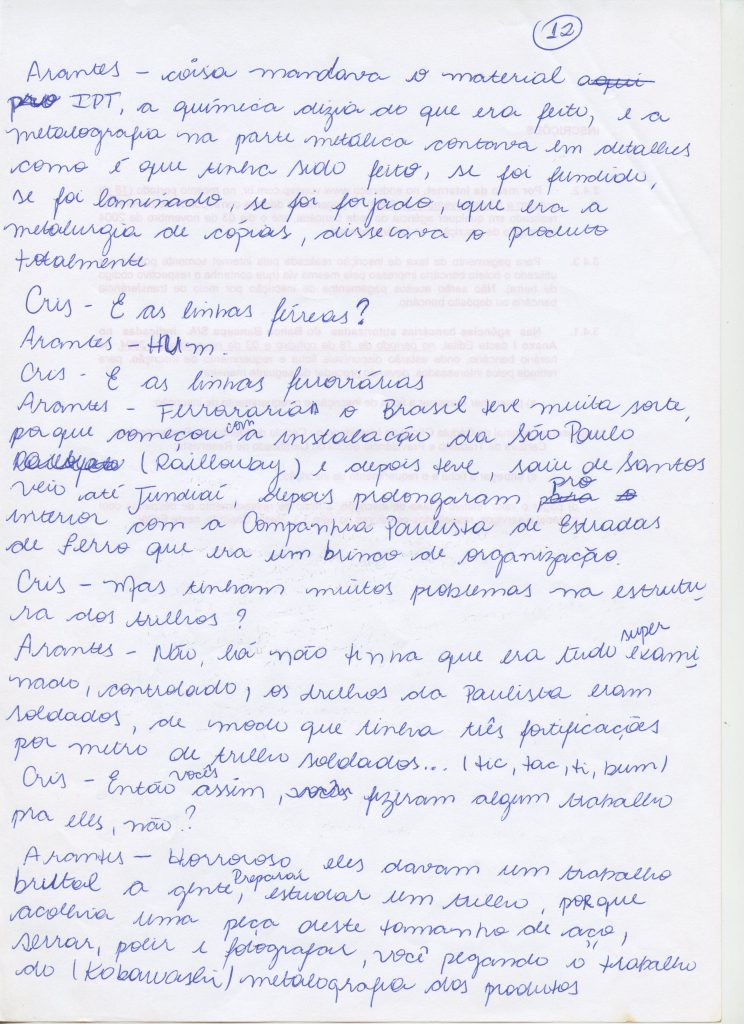 12
Arantes - coisa mandava o material aqui
pro IPT, a química dizia do que era feito, e a
metalografia na parte metálica contava em detalhes
como é que tinha sido feito, se foi fundido,
se foi laminado, se foi forjado, que era a
metalurgia de cópias, dissecava o produto
totalmente
Cris - E as linhas férreas?
Arantes - HUm.
Cris - E as linhas ferroviárias
Arantes - o Brasil teve muita sorte,
porque começou com a instalação da São Paulo
(Raillway) e depois teve, saiu de Santos
veio até Jundiaí, depois prolongaram pro
interior com a Companhia Paulista de Estradas
de Ferro que era um brinco de organização.
Cris - Mas tinham muitos problemas na estrutu-
ra dos trilhos?
Arantes - Não, lá não tinha que era tudo super exami-
nado, controlado, os trilhos da Paulista eram
soldados, de modo que tinha três fortificações
por metro de trilho soldados... (tic, tac, ti, bum)
Cris - Então vocês assim, vocês fizeram algum trabalho
pra eles, não?
Arantes - Horroroso, eles davam um trabalho
brutal a gente, Preparar, estudar um trilho, porque
acolhia uma peça deste tamanho de aço,
serrar, polir e fotografar, você pegando o "trabalho
do (Kobawashi) metalografia dos produtos